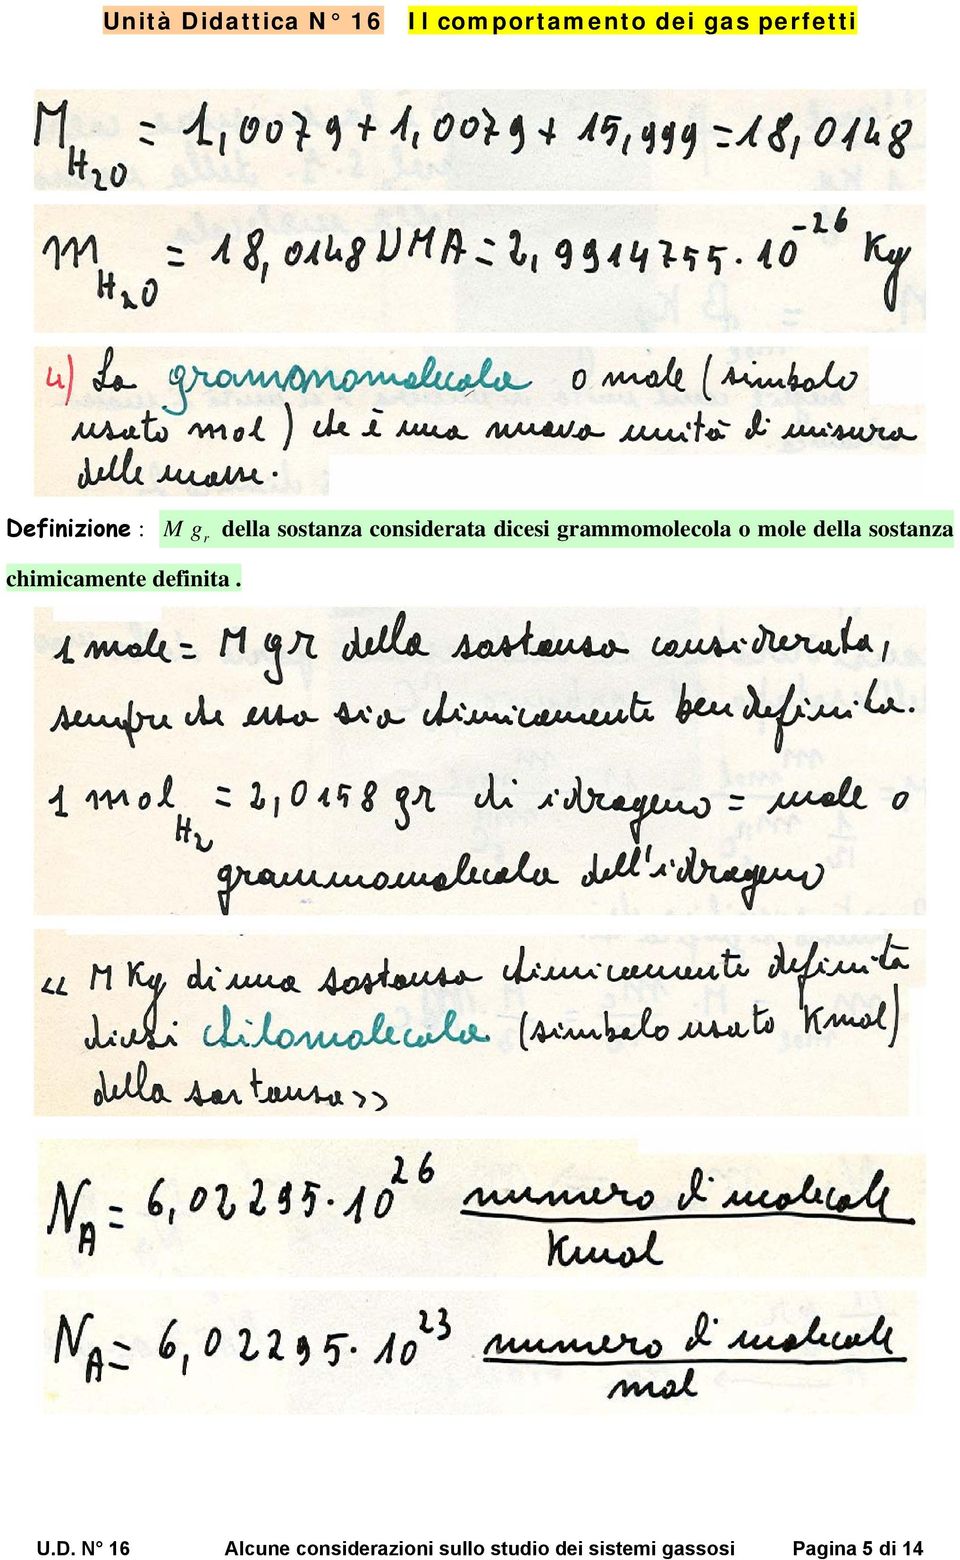 Unità Didattica N° 16 Il comportamento dei gas perfetti
M H₂O = 1,0079 + 1,0079 + 15,999 = 18,0148
m H₂O = 18,0148 UMA = 2,9914755 · 10⁻²⁶ Kg
4) La grammomolecola o mole (simbolo
usato mol) che è una nuova unità di misura
delle masse.
Definizione : M gᵣ della sostanza considerata dicesi grammomolecola o mole della sostanza
chimicamente definita .
1 mole = M gr della sostanza considerata,
sempre che essa sia chimicamente ben definita.
1 mol H₂ = 2,0158 gr di idrogeno = mole o
grammomolecola dell'idrogeno
<< M Kg di una sostanza chimicamente definita
dicesi chilomolecola (simbolo usato Kmol)
della sostanza >>
N_A = 6,02295 · 10²⁶ numero di molecole / Kmol
N_A = 6,02295 · 10²³ numero di molecole / mol
U.D. N° 16 Alcune considerazioni sullo studio dei sistemi gassosi Pagina 5 di 14